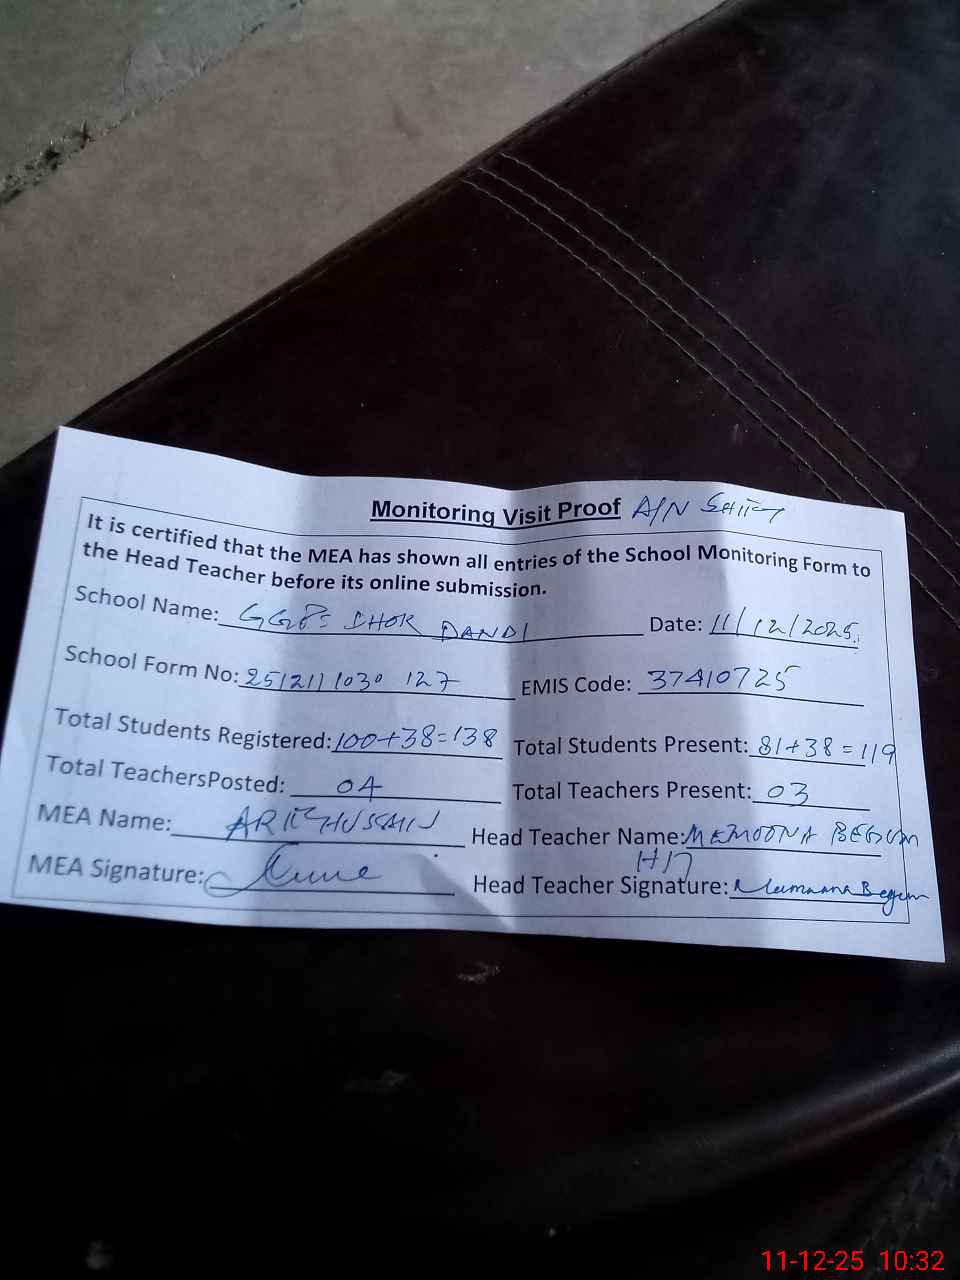 Monitoring Visit Proof A/N
It is certified that the MEA has shown all entries of the School Monitoring Form to
the Head Teacher before its online submission.
School Name: DANDI Date: 11/12/2025
School Form No: 2512111030 127 EMIS Code: 37410725
Total Students Registered: 100+38=138 Total Students Present: 81+38=119
Total TeachersPosted: 04 Total Teachers Present: 03
MEA Name: HUSSAIN Head Teacher Name: MEMOONA BEGUM
MEA Signature: Head Teacher Signature: Begum
11-12-25 10:32